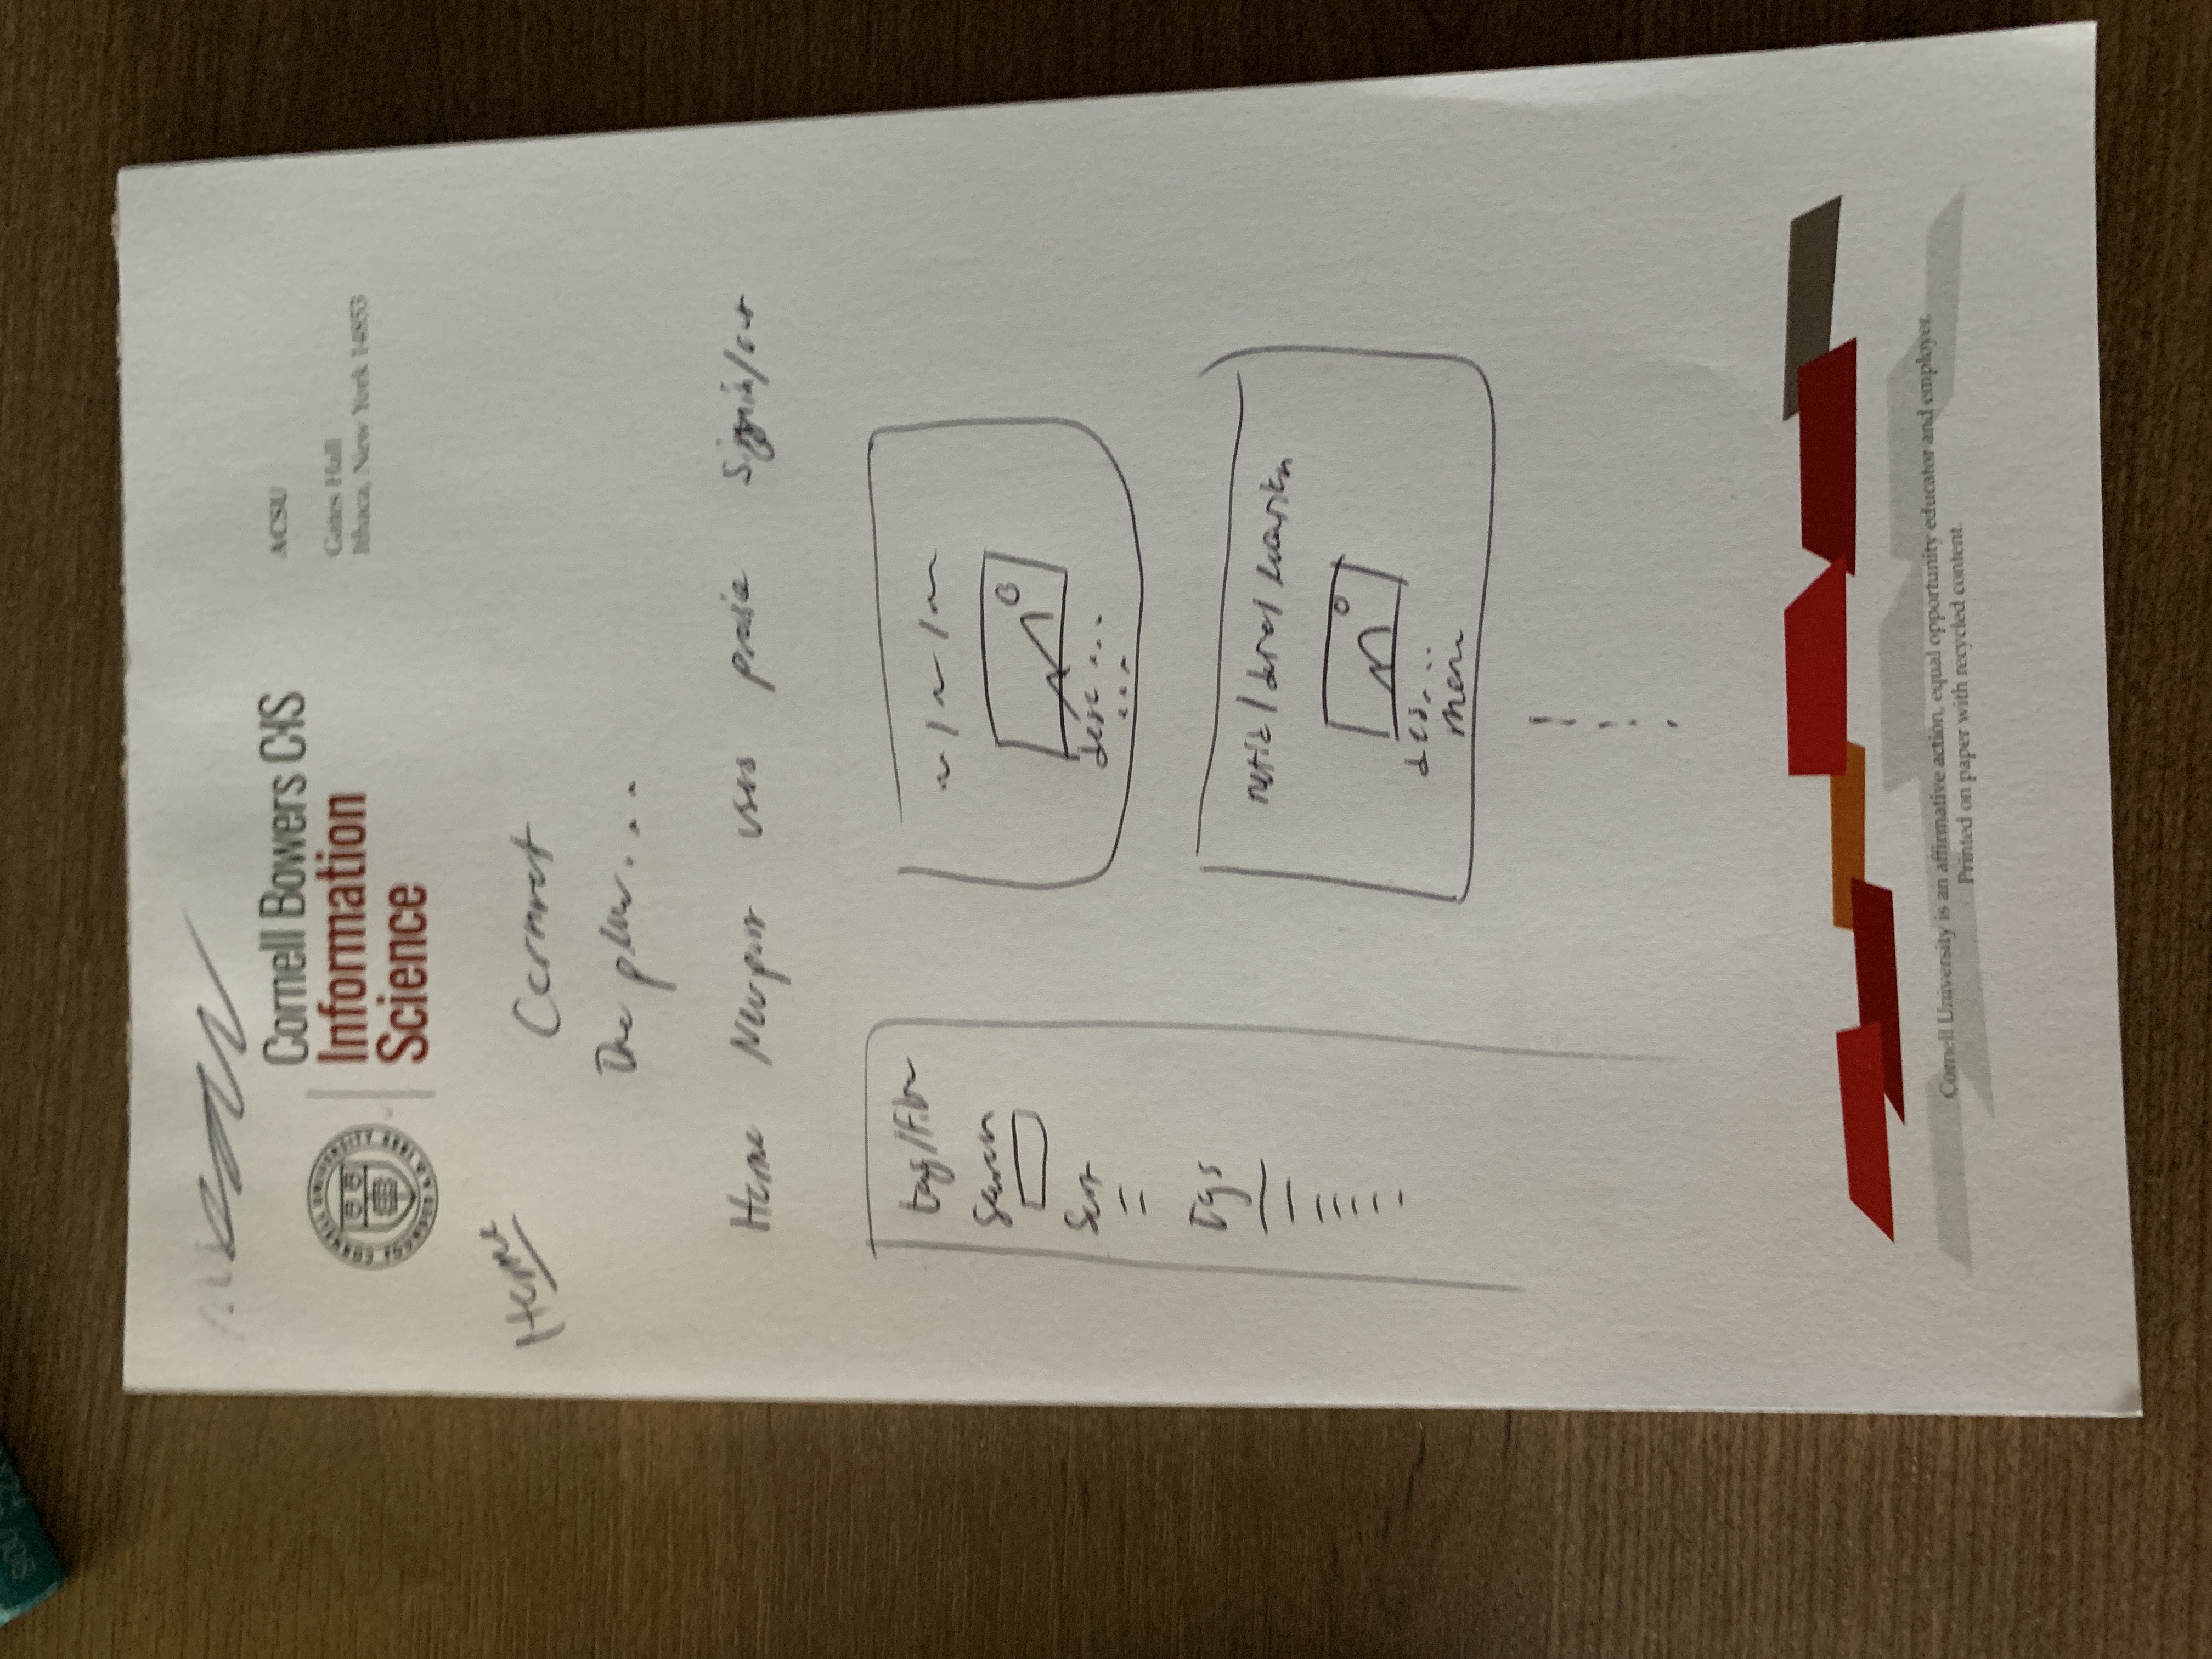 Cornell Bowers C·IS
Information
Science
ACSU
Gates Hall
Ithaca, New York 14853
CORNELL UNIVERSITY
FOUNDED A.D. 1865
Home
The
Home New post users profile Sign in/out
tag/filter
Search
Sort
Tags
desc ...
...
netid / date / location
des...
Cornell University is an affirmative action, equal opportunity educator and employer.
Printed on paper with recycled content.